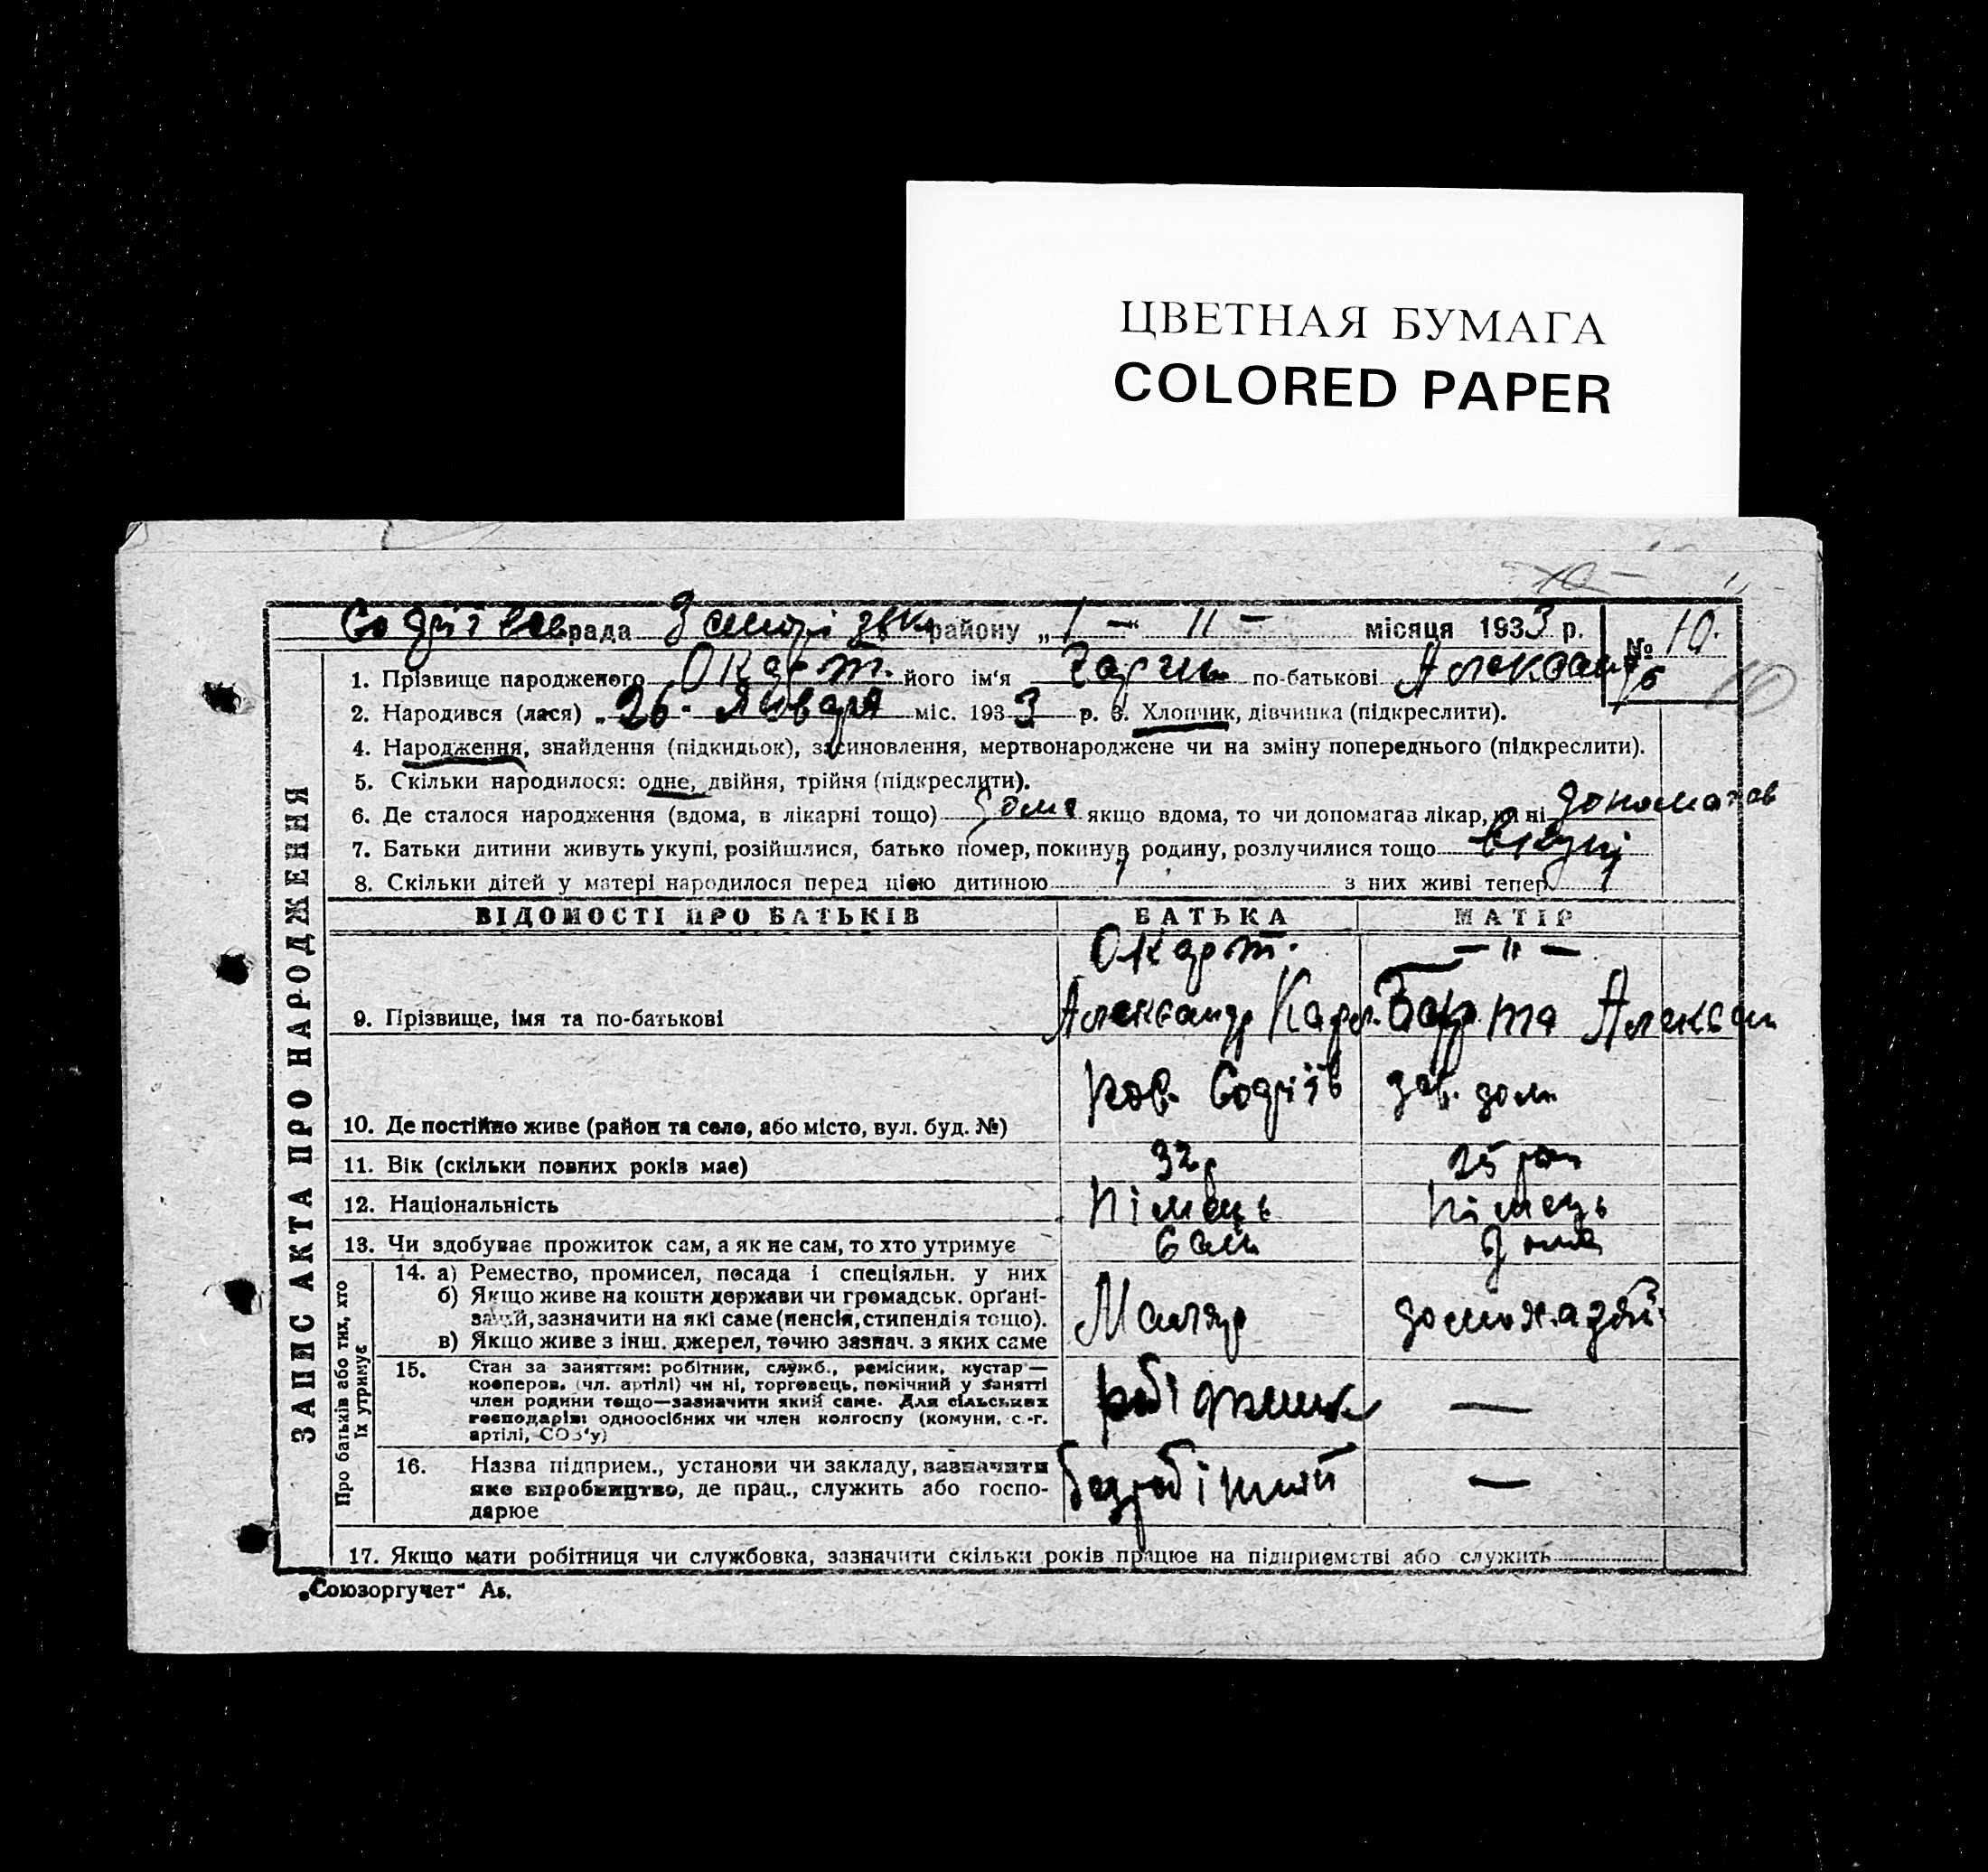 ЦВЕТНАЯ БУМАГА
COLORED PAPER
рада району „ 1 – “ 11 – місяця 1933 р. № 10.
1. Прізвище народженого Окарт. його ім'я по-батькові Александр
2. Народився (лася) „ 26. Января міс. 1933 р. 3. Хлопчик, дівчинка (підкреслити).
4. Народження, знайдення (підкидьок), засиновлення, мертвонароджене чи на зміну попереднього (підкреслити).
5. Скільки народилося: одне, двійня, трійня (підкреслити).
6. Де сталося народження (вдома, в лікарні тощо) дома якщо вдома, то чи допомагав лікар, чи ні допомагав
7. Батьки дитини живуть укупі, розійшлися, батько помер, покинув родину, розлучилися тощо вкупі
8. Скільки дітей у матері народилося перед цією дитиною 1 з них живі тепер 1
ВІДОМОСТІ ПРО БАТЬКІВ БАТЬКА МАТІР
Окарт. — " —
9. Прізвище, імя та по-батькові Александр Карл. Берта Алексан
10. Де постійно живе (район та село, або місто, вул. буд. №)
11. Вік (скільки повних років має) 32 р 25 рок
12. Національність Німець Німець
13. Чи здобуває прожиток сам, а як не сам, то хто утримує Сам
14. а) Ремество, промисел, посада і спеціяльн. у них
б) Якщо живе на кошти держави чи громадськ. органі-
зацій, зазначити на які саме (пенсія, стипендія тощо).
в) Якщо живе з інш. джерел, точно зазнач. з яких саме
Маляр домохазяй.
15. Стан за заняттям: робітник, служб., ремісник, кустар —
кооперов. (чл. артілі) чи ні, торговець, помічний у занятті
член родини тощо—зазначити який саме. Для сільських
господарів: одноосібних чи член колгоспу (комуни, с.-г.
артілі, СОЗ'у)
робітник —
16. Назва підприєм., установи чи закладу, зазначити
яке виробництво, де прац., служить або госпо-
дарює
безробітний —
17. Якщо мати робітниця чи службовка, зазначити скільки років працює на підприємстві або служить
ЗАПИС АКТА ПРО НАРОДЖЕННЯ
Про батьків або тих, хто
їх утримує
„Союзоргучет“ Ав.